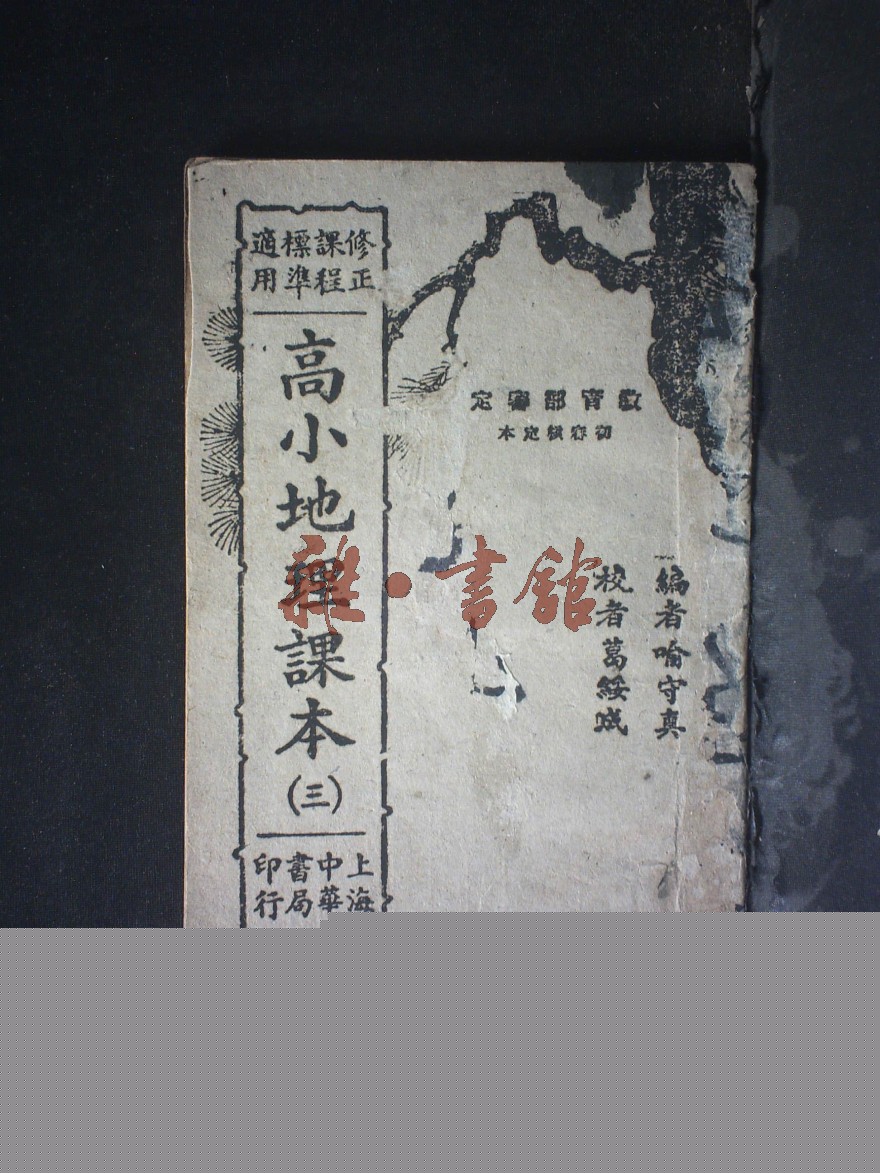 修正
課程
標準
適用
高小地理課本
(三)
上海
中華
書局
印行
教育部審定
初審核定本
編者喻守真
校者葛綏成
雜·書館